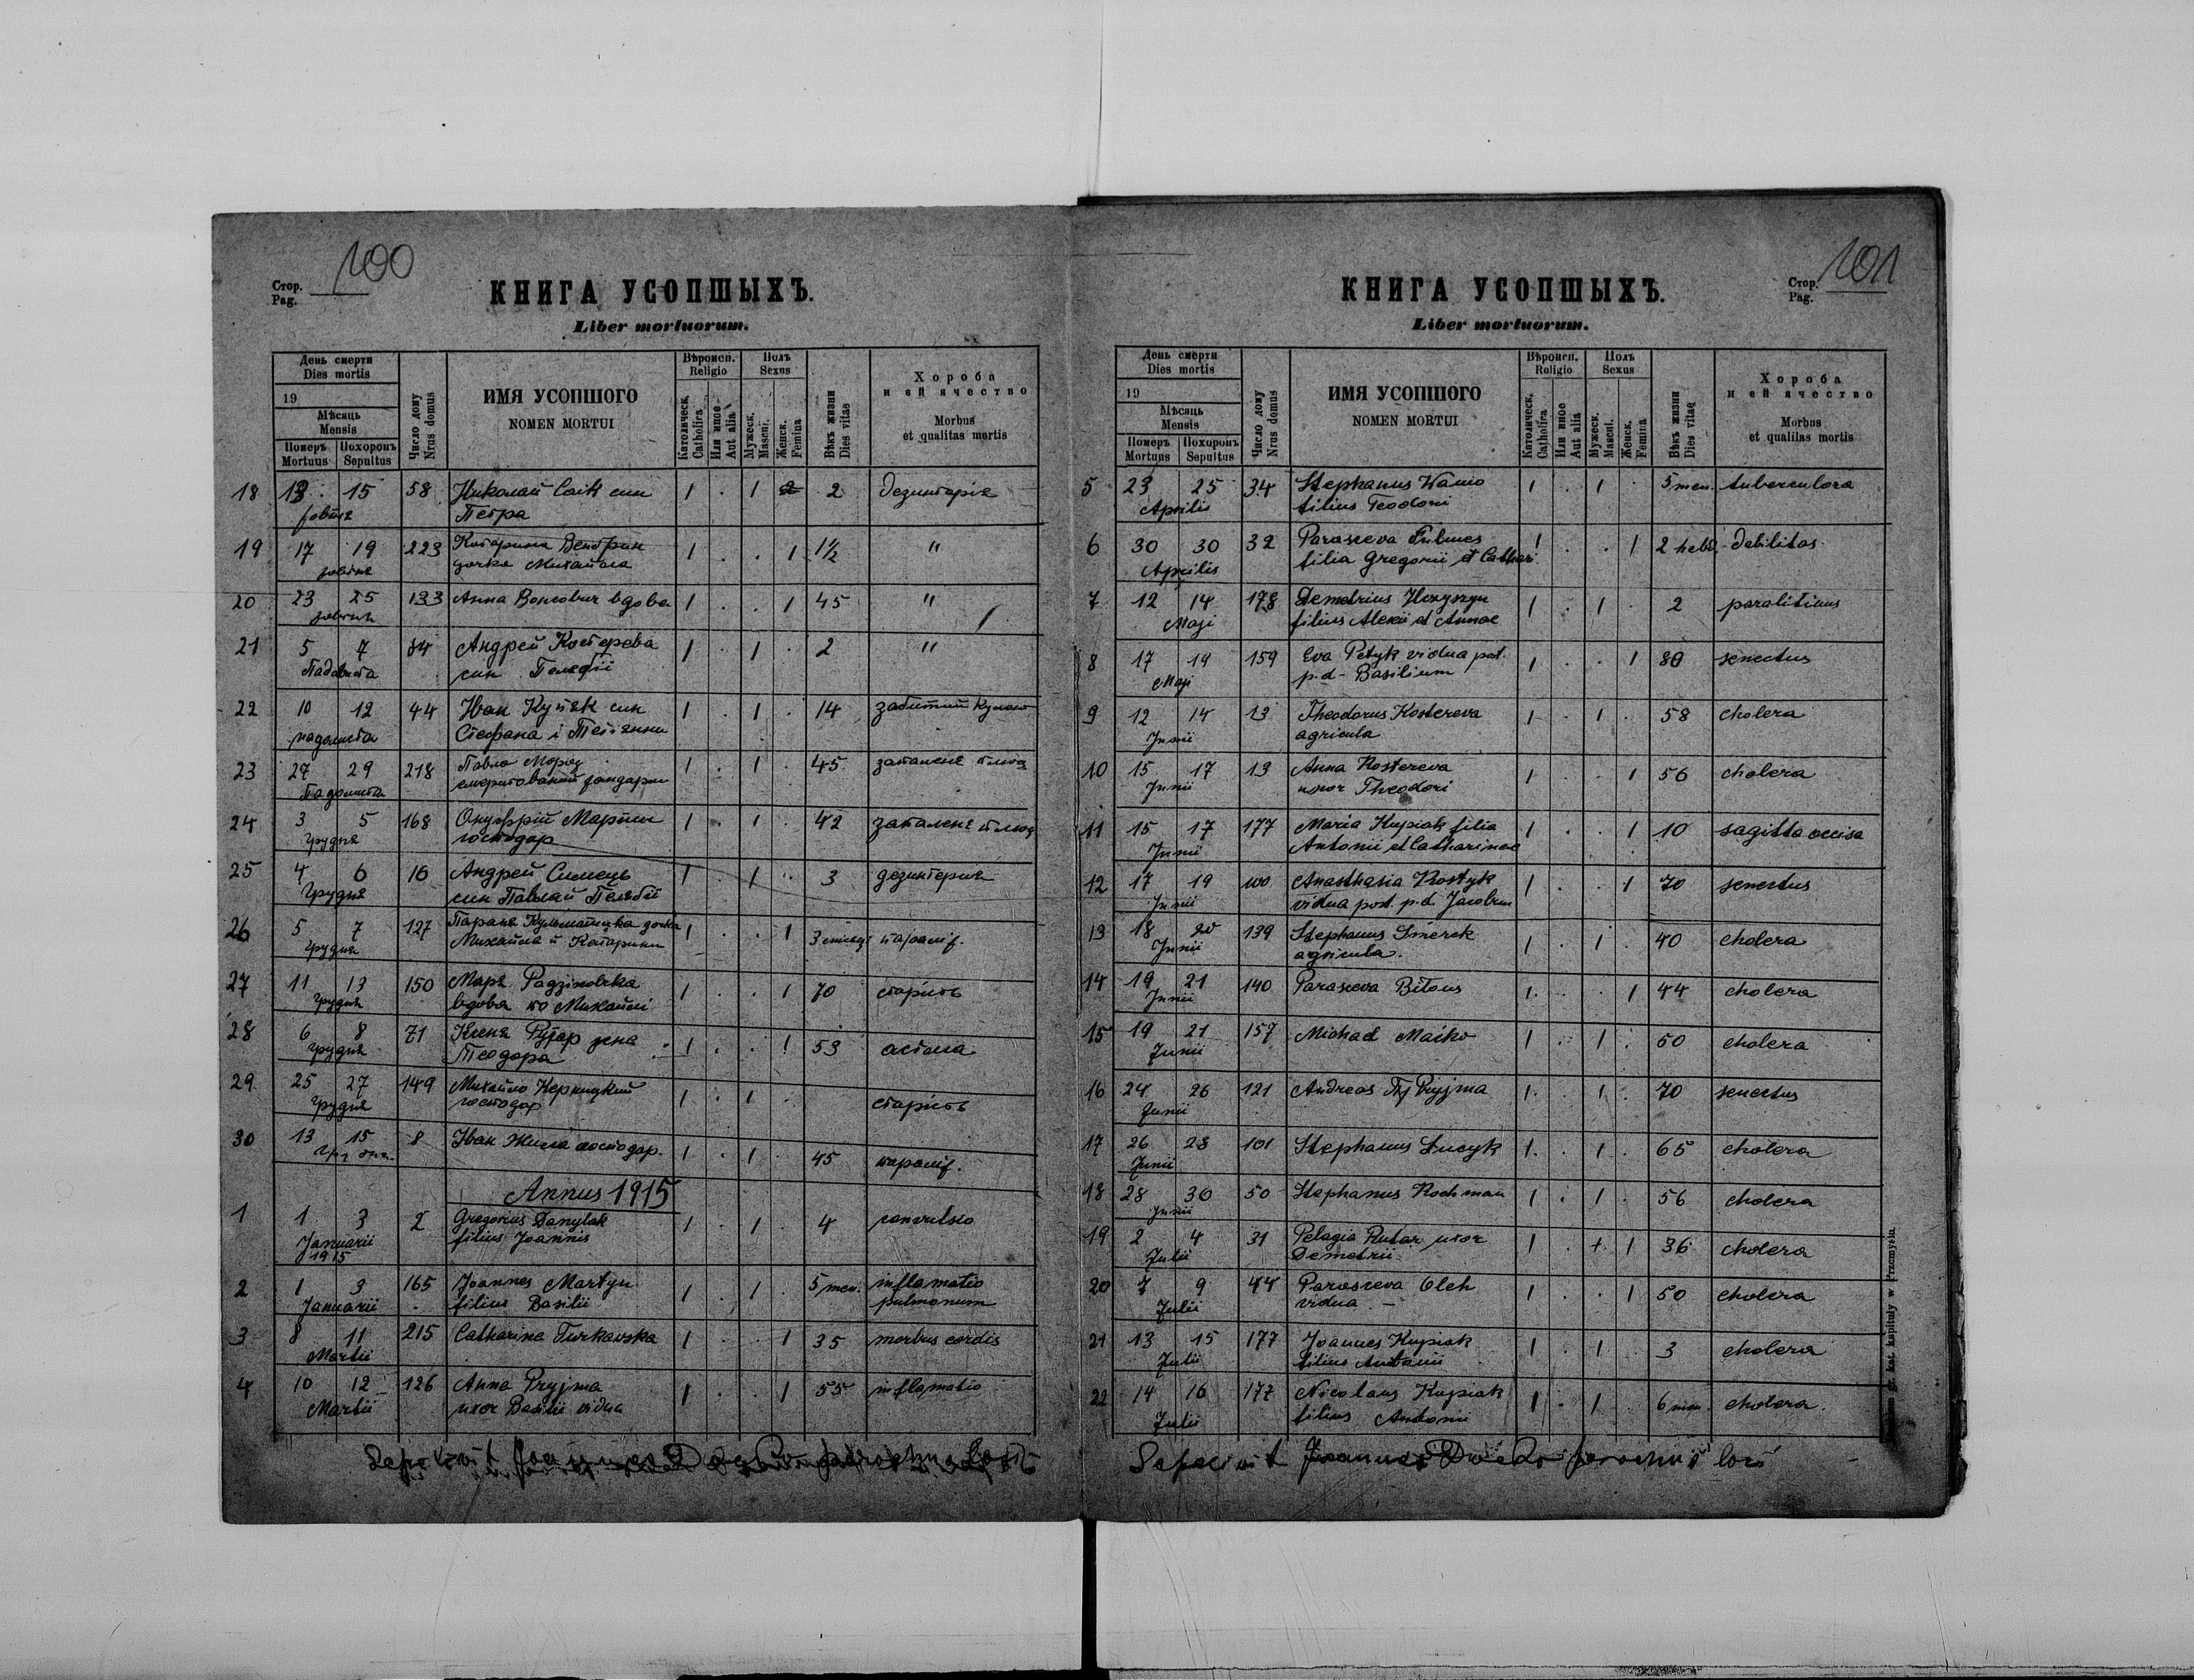 100
Стор.
Pag.
КНИГА УСОПШЫХЪ.
Liber mortuorum.
День смерти
Dies mortis
19
Мѣсяць
Mensis
Померъ
Mortuus
Похоронъ
Sepultus
Число дому
Nrus domus
ИМЯ УСОПШОГО
NOMEN MORTUI
Вѣроисп.
Religio
Католическ.
Catholica
Или иное
Aut alia
Полъ
Sexus
Мужеск.
Mascul.
Женск.
Femina
Вѣкъ жизни
Dies vitae
Хороба
и ей ячество
Morbus
et qualitas mortis
18 13 15 58 Николай син 1 . 1 2 дезинтерія
Петра
19 17 19 223 Катарина 1 . . 1 1½ "
дочка Михайла
20 23 25 133 Анна вдова 1 . . 1 45 "
21 5 7 84 Андрей Костерева 1 . 1 . 2 "
Падолиста син
22 10 12 44 Иван Купяк син 1 . 1 . 14 забитий кулею
падолиста Стефана і
23 27 29 218 Павло Мороз 1 . 1 . 45 запаленя
Падолиста жандарм
24 3 5 168 Онуфрій Мартин 1 . 1 . 42 запаленя
грудня господар
25 4 6 16 Андрей 1 . 1 . 3 дезинтерия
Грудня син
26 5 7 127 дочка 1 . . 1 3
грудня Михайла и Катарини
27 11 13 150 Маря 1 . . 1 70 старість
грудня вдова по Михайлі
28 6 8 71 Ксеня жена 1 . . 1 53 астма
грудня Теодора
29 25 27 149 Михайло Керницкий 1 . 1 . старість
грудня господар
30 13 15 8 Іван Жила господар. 1 . 1 . 45
Annus 1915
1 1 3 2 Gregorius Danylak 1 . 1 . 4 convulsio
Januarii filius Joannis
1915
2 1 3 165 Joannes Martyn 1 . 1 . 5 men. inflamatio
Januarii filius Basilii pulmonum
3 8 11 215 Catharina Turkawska 1 . . 1 35 morbus cordis
Martii
4 10 12 126 Anna Pryjma 1 . . 1 55 inflamatio
Martii uxor Basilii vidua
Sepelivit Joannes parochus loci
101
Стор.
Pag.
КНИГА УСОПШЫХЪ.
Liber mortuorum.
День смерти
Dies mortis
19
Мѣсяць
Mensis
Померъ
Mortuus
Похоронъ
Sepultus
Число дому
Nrus domus
ИМЯ УСОПШОГО
NOMEN MORTUI
Вѣроисп.
Religio
Католическ.
Catholica
Или иное
Aut alia
Полъ
Sexus
Мужеск.
Mascul.
Женск.
Femina
Вѣкъ жизни
Dies vitae
Хороба
и ей ячество
Morbus
et qualitas mortis
5 23 25 34 Stephanus 1 . 1 . 5 men. tuberculosa
Aprilis filius Teodori
6 30 30 32 Parasceva 1 . . 1 2 hebd. debilitas
Aprilis filia Gregorii et Cathari
7 12 14 178 Demetrius 1 . 1 . 2 paraliticus
Maji filius Alexii et Annae
8 17 19 159 Eva Petyk vidua post. 1 . . 1 80 senectus
Maji p.d- Basilium
9 12 14 13 Theodorus Kostereva 1 . 1 . 58 cholera
Junii agricula
10 15 17 13 Anna Kostereva 1 . . 1 56 cholera
Junii uxor Theodori
11 15 17 177 Maria Kupiak filia 1 . . 1 10 sagitta occisa
Junii Antonii et Catharinae
12 17 19 100 Anasthasia Kostyk 1 . . 1 70 senectus
Junii vidua post. p.d. Jacobum
13 18 20 139 Stephanus Smerek 1 . 1 . 40 cholera
Junii agricula.
14 19 21 140 Parasceva Bilous 1 . . 1 44 cholera
Junii
15 19 21 157 Michael Maćko 1 . 1 . 50 cholera
Junii
16 24 26 121 Andreas Pryjma 1 . 1 . 70 senectus
Junii
17 26 28 101 Stephanus Lucyk 1 . 1 . 65 cholera
Junii
18 28 30 50 Stephanus Rochman 1 . 1 . 56 cholera
Junii
19 2 4 31 Pelagia Rutar uxor 1 . 1 36 cholera
Julii Demetrii
20 7 9 44 Parasceva Oleh 1 . . 1 50 cholera
Julii vidua -
21 13 15 177 Joannes Kupiak 1 . 1 . 3 cholera
Julii filius Antonii
22 14 16 177 Nicolaus Kupiak 1 . 1 . 6 men. cholera.
Julii filius Antonii
Sepelivit Joannes parochus loci
gr. kat. kapituły w Przemyślu